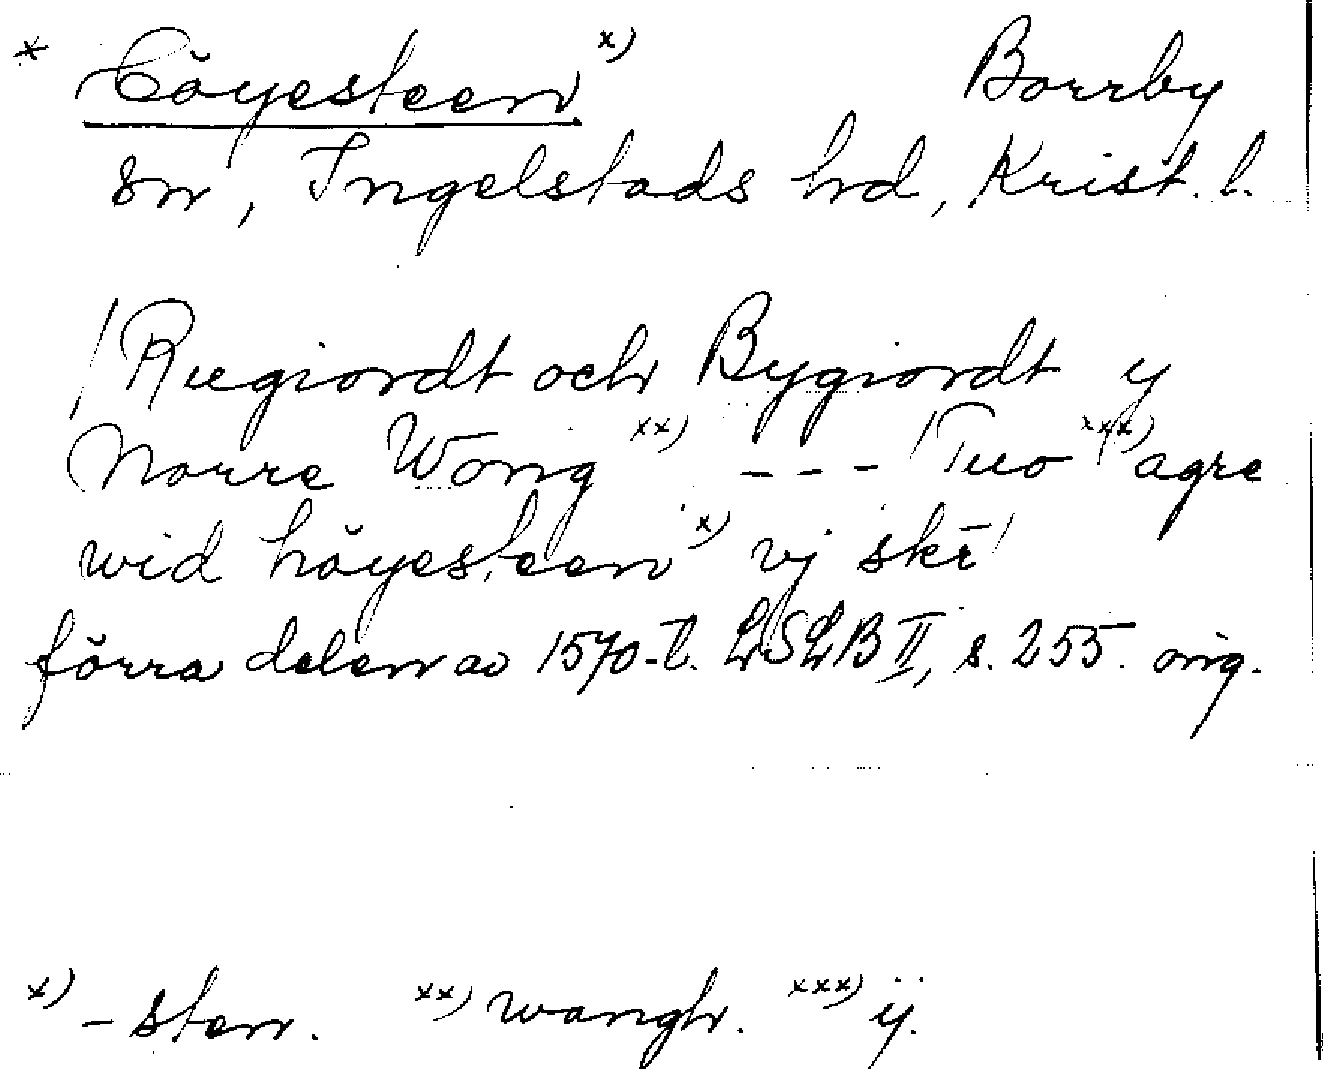 * Höyesteen x) Borrby
sn, Ingelstads hd, Krist. l.
/Rugiordt och Bygiordt y
Norre Wong xx) --- /Tuo xxx) agre
wid höyesteen x) vj ske/
förra delen av 1570-t. LSLB II, s. 255. orig.
x) -sten. xx) wangh. xxx) ij.